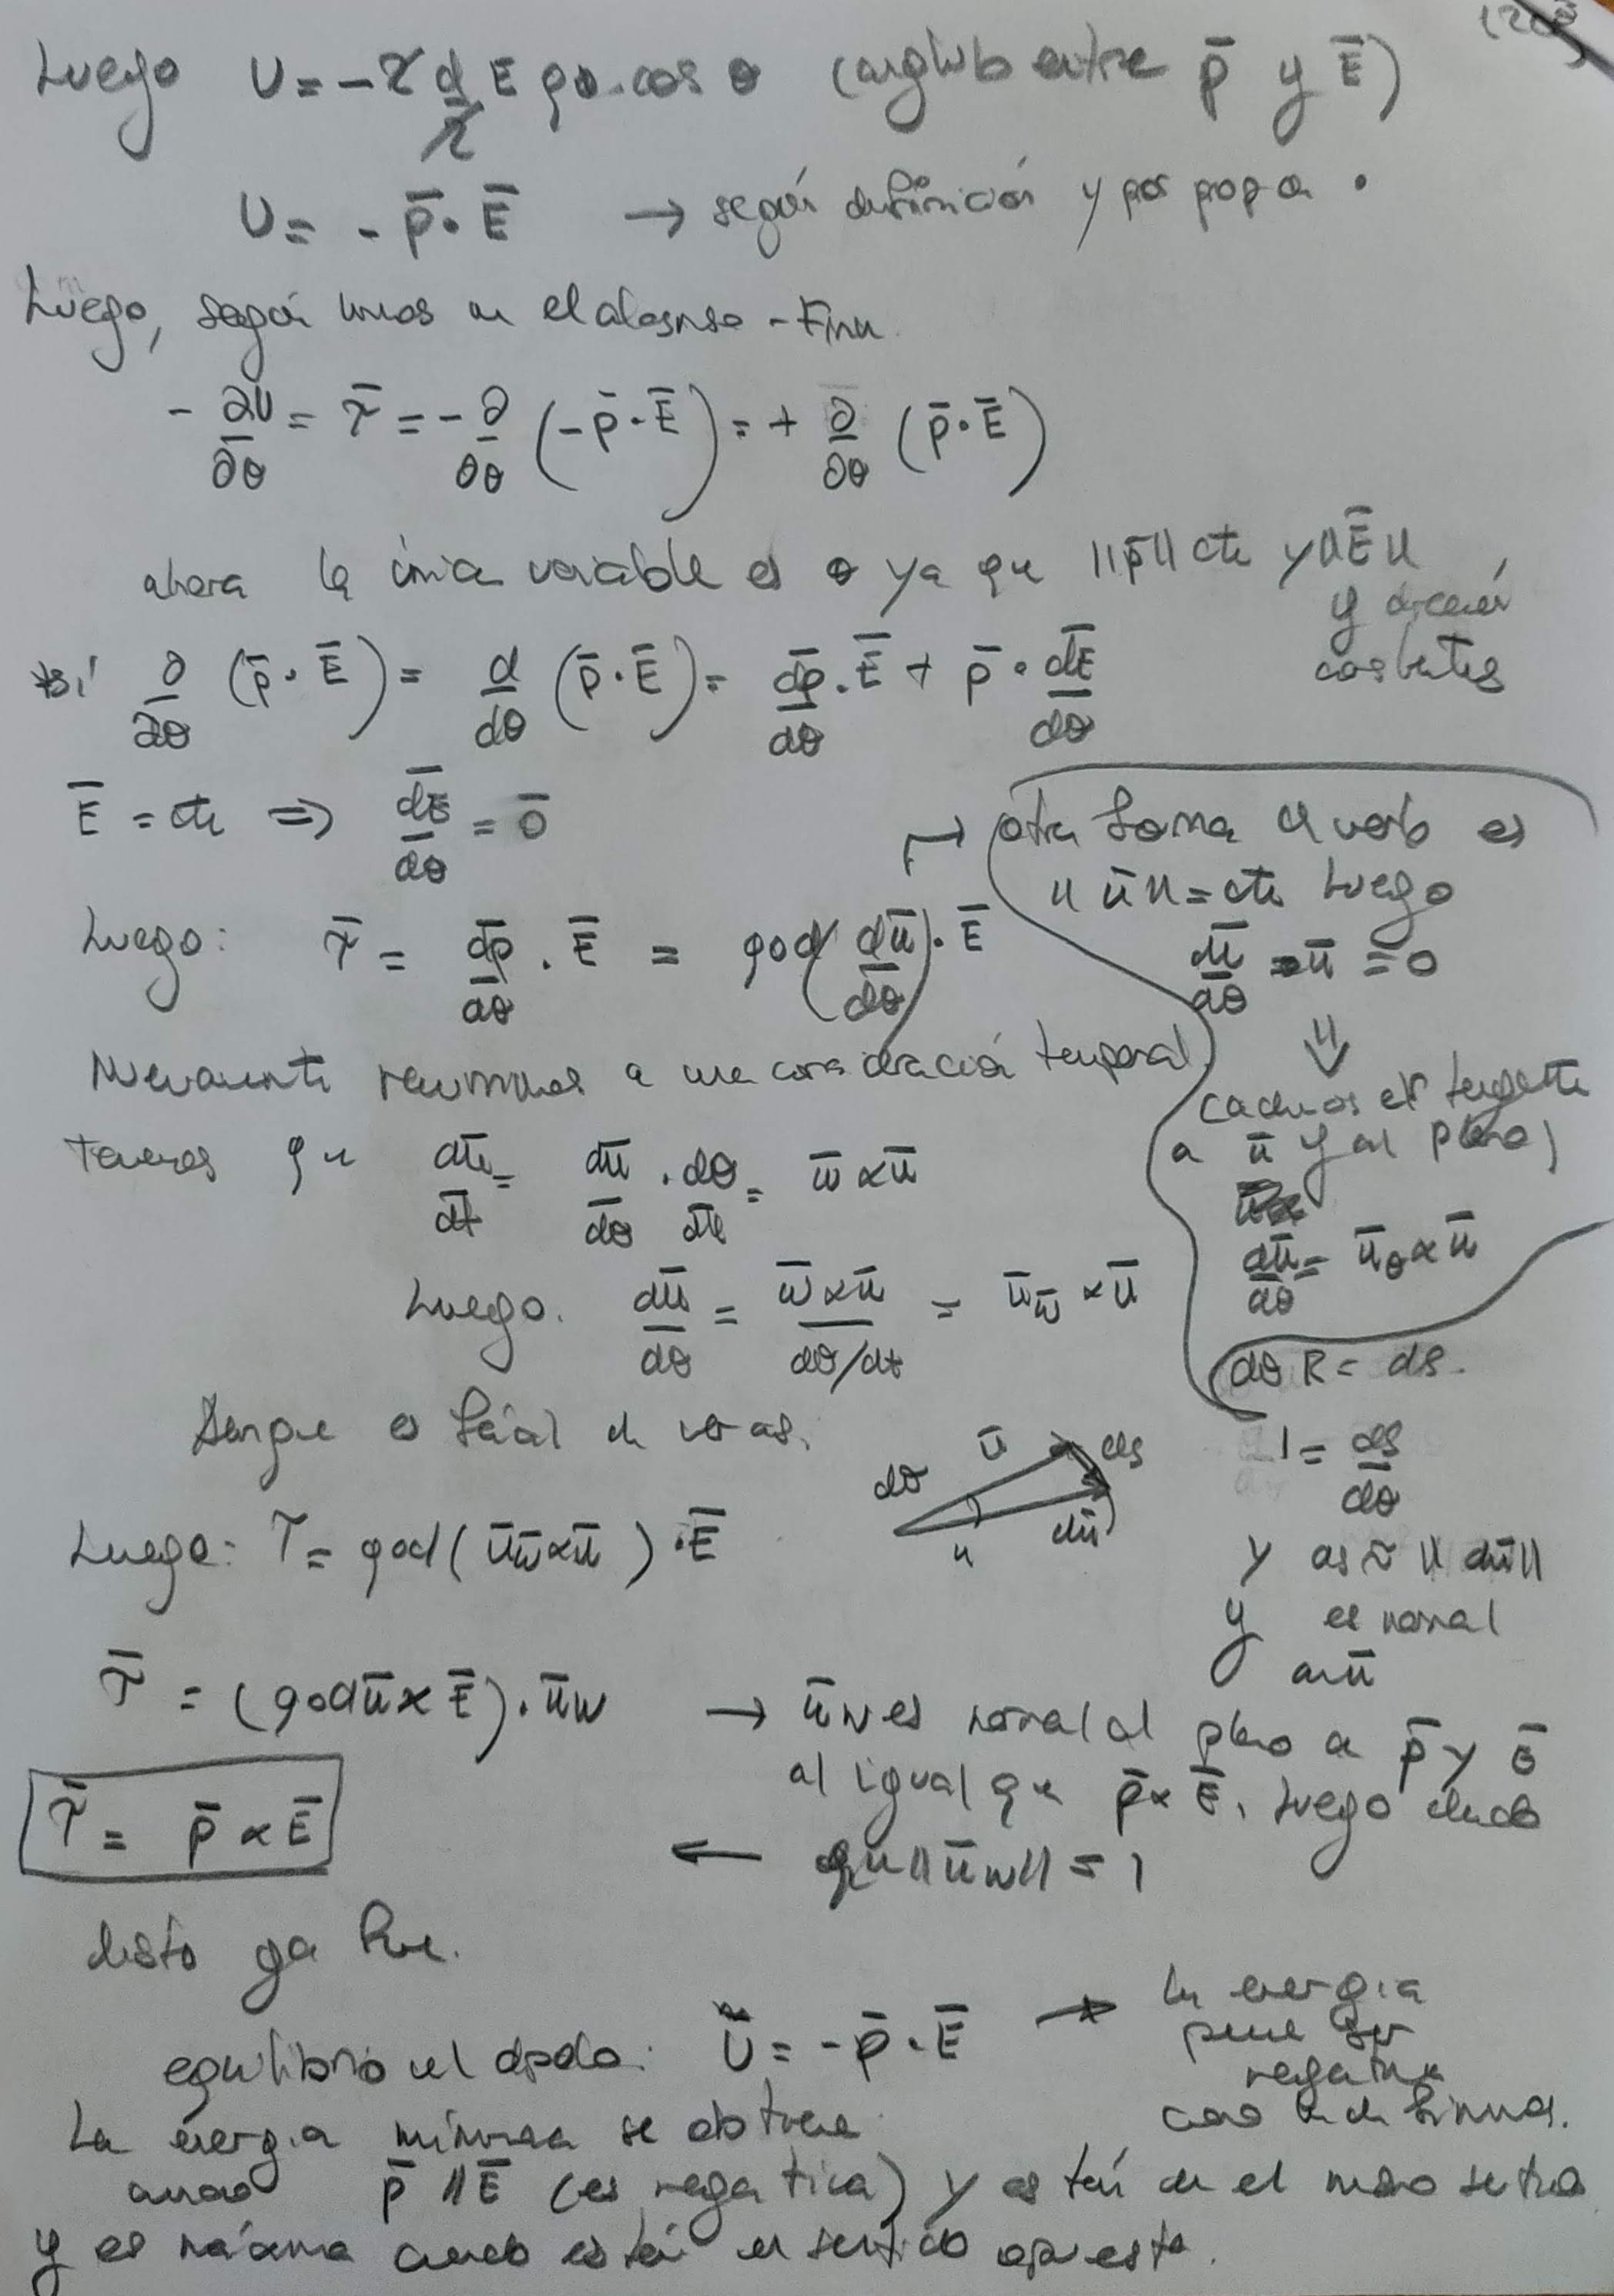 Luego U = - 2 d/2 E q0 · cos θ (angulo entre p̄ y Ē)
U = - p̄ · Ē → según definición y por prop a ·
Luego, según vimos en el
- ∂U/∂θ = τ̄ = - ∂/∂θ (-p̄ · Ē) = + ∂/∂θ (p̄ · Ē)
ahora la única variable es θ ya que ||p̄|| cte y ||Ē||
y dirección constantes
∂/∂θ (p̄ · Ē) = d/dθ (p̄ · Ē) = dp̄/dθ · Ē + p̄ · dĒ/dθ
Ē = cte ⇒ dĒ/dθ = 0̄
Luego: τ̄ = dp̄/dθ · Ē = q0d (dū/dθ) · Ē
↦ otra forma de verlo es
||ū|| = cte Luego
dū/dθ · ū = 0
⇓
a ū y al plano)
dū/dθ = ūθ × ū
dθ R = ds.
1 = ds/dθ
y ds ≈ ||dū||
y es normal
a ū
Nuevamente recurrimos a una consideración temporal
Tenemos que dū/dt = dū/dθ · dθ/dt = w̄ × ū
Luego. dū/dθ = w̄ × ū / dθ/dt = ūw̄ × ū
Aunque es fácil de ver así.
dθ ū ds
u dū
Luego: τ = q0d (ūw̄ × ū) · Ē
τ̄ = (q0dū × Ē) · ūw → ūw es normal al plano a p̄ y Ē
al igual que p̄ × Ē, Luego dado
← que ||ūw|| = 1
τ̄ = p̄ × Ē
equilibrio del dipolo: U = - p̄ · Ē → La energia
puede ser
negativa
como la definimos.
La energia mínima se obtiene
cuando p̄ || Ē (es negativa) y están en el mismo sentido
y es máxima cuando están en sentido opuesto.